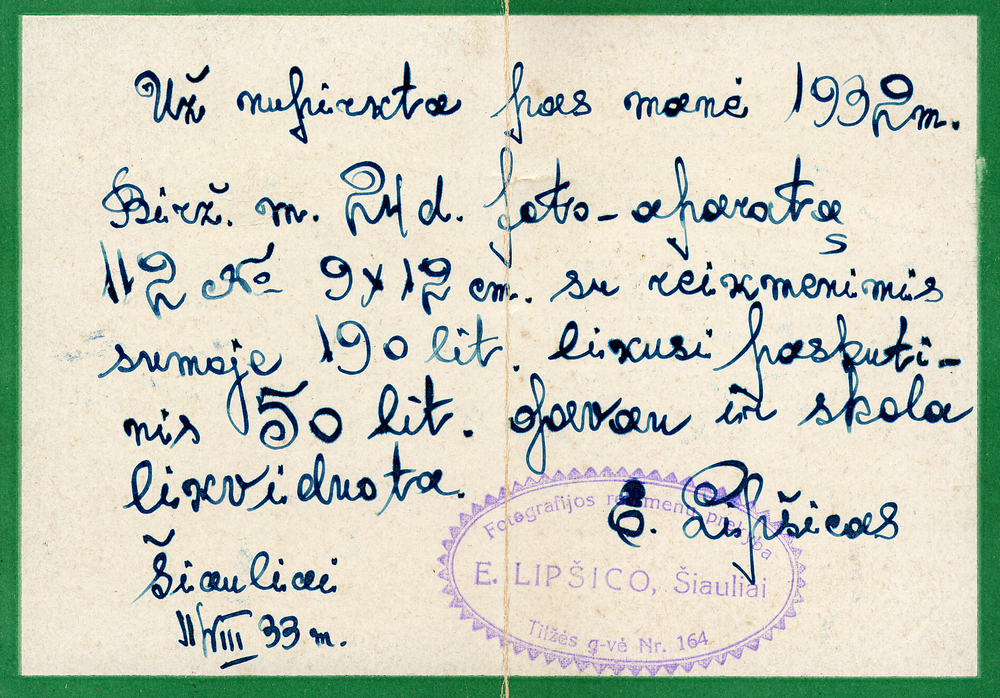 Už nupirxta pas manė 1932 m.
Birž. m. 24 d. foto-aparatą
112 № 9x12 cm. su reixmenimis
sumoje 190 lit. lixusi paskuti-
nis 50 lit. gavau ir skola
lixviduota.
E. Lipšicas
Šiauliai
11/VIII 33 m.
Fotografijos reikmenų prekyba
E. LIPŠICO, Šiauliai
Tilžės g-vė Nr. 164